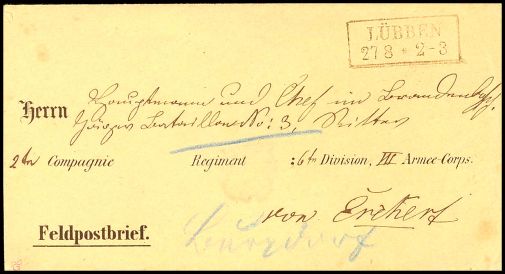 LÜBBEN
27 8 * 2-3
Herrn Hauptmann und Chef im Brandenbg.
Jäger Bataillon No: 3, Ritter
2ten Compagnie Regiment :6ten Division, III. Armee-Corps.
von Erckert
Feldpostbrief.